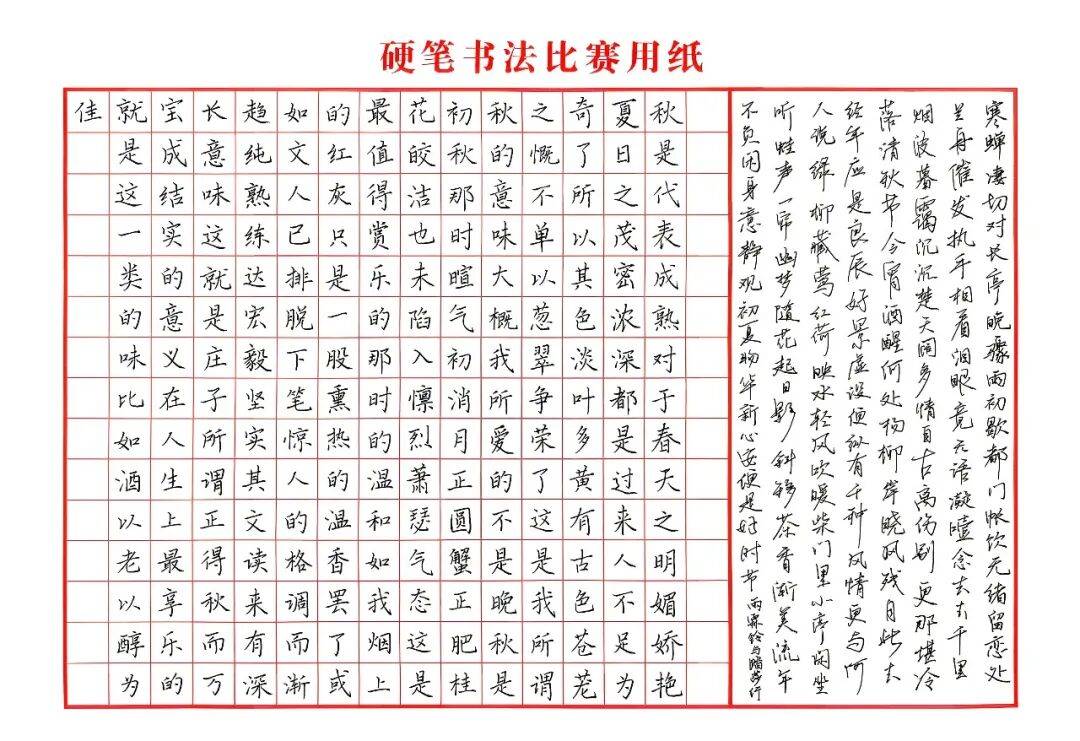 硬笔书法比赛用纸
寒蝉凄切对长亭晚骤雨初歇都门帐饮无绪留恋处
兰舟催发执手相看泪眼竟无语凝噎念去去千里
烟波暮霭沉沉楚天阔多情自古离伤别更那堪冷
落清秋节今宵酒醒何处杨柳岸晓风残月此去
经年应是良辰好景虚设便纵有千种风情更与何
人说绿柳藏莺红荷映水轻风吹暖柴门里小亭闲坐
听蛙声一帘幽梦随花起日影斜移茶香渐美流年
不负闲身意静观初夏物华新心安便是好时节雨霖铃与踏莎行
秋是代表成熟对于春天之明媚娇艳
夏日之茂密浓深都是过来人不足为
奇了所以其色淡叶多黄有古色苍茏
之慨不单以葱翠争荣了这是我所谓
秋的意味大概我所爱的不是晚秋是
初秋那时暄气初消月正圆蟹正肥桂
花皎洁也未陷入懔烈萧瑟气态这是
最值得赏乐的那时的温和如我烟上
的红灰只是一股熏热的温香罢了或
如文人已排脱下笔惊人的格调而渐
趋纯熟练达宏毅坚实其文读来有深
长意味这就是庄子所谓正得秋而万
宝成结实的意义在人生上最享乐的
就是这一类的味比如酒以老以醇为
佳